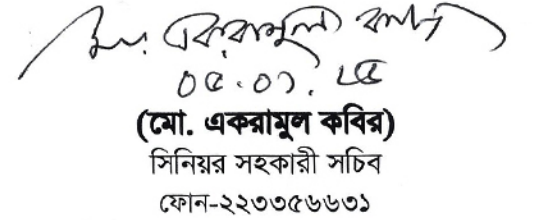 মো. একরামুল কবির
০৫.০১.২৫
(মো. একরামুল কবির)
সিনিয়র সহকারী সচিব
ফোন-২২৩৩৫৬৬৩১